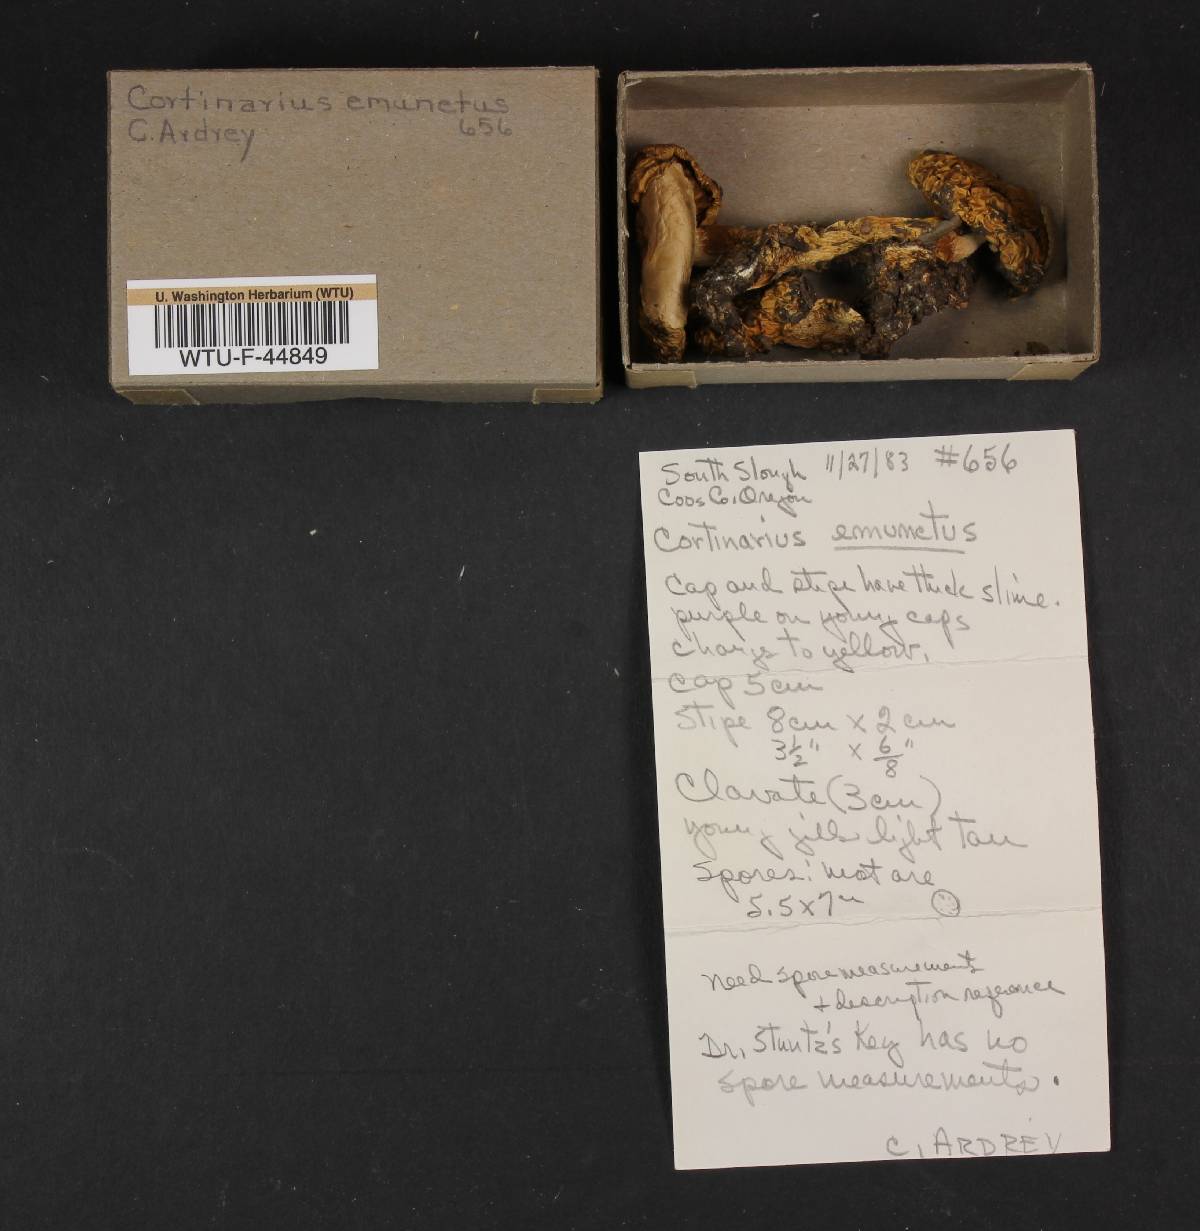 Cortinarius emunctus
C. Ardrey 656
U. Washington Herbarium (WTU)
WTU-F-44849
South Slough 11/27/83 #656
Coos Co, Oregon
Cortinarius emunctus
Cap and stipe have thick slime.
purple on young caps
change to yellow.
Cap 5cm
Stipe 8cm x 2cm
3 1/2" x 6/8"
Clavate (3cm)
young gills light tan
Spores: most are
5.5x7u
need spore measurements
+ description reference
Dr. Stuntz's Key has no
spore measurements.
C. ARDREY